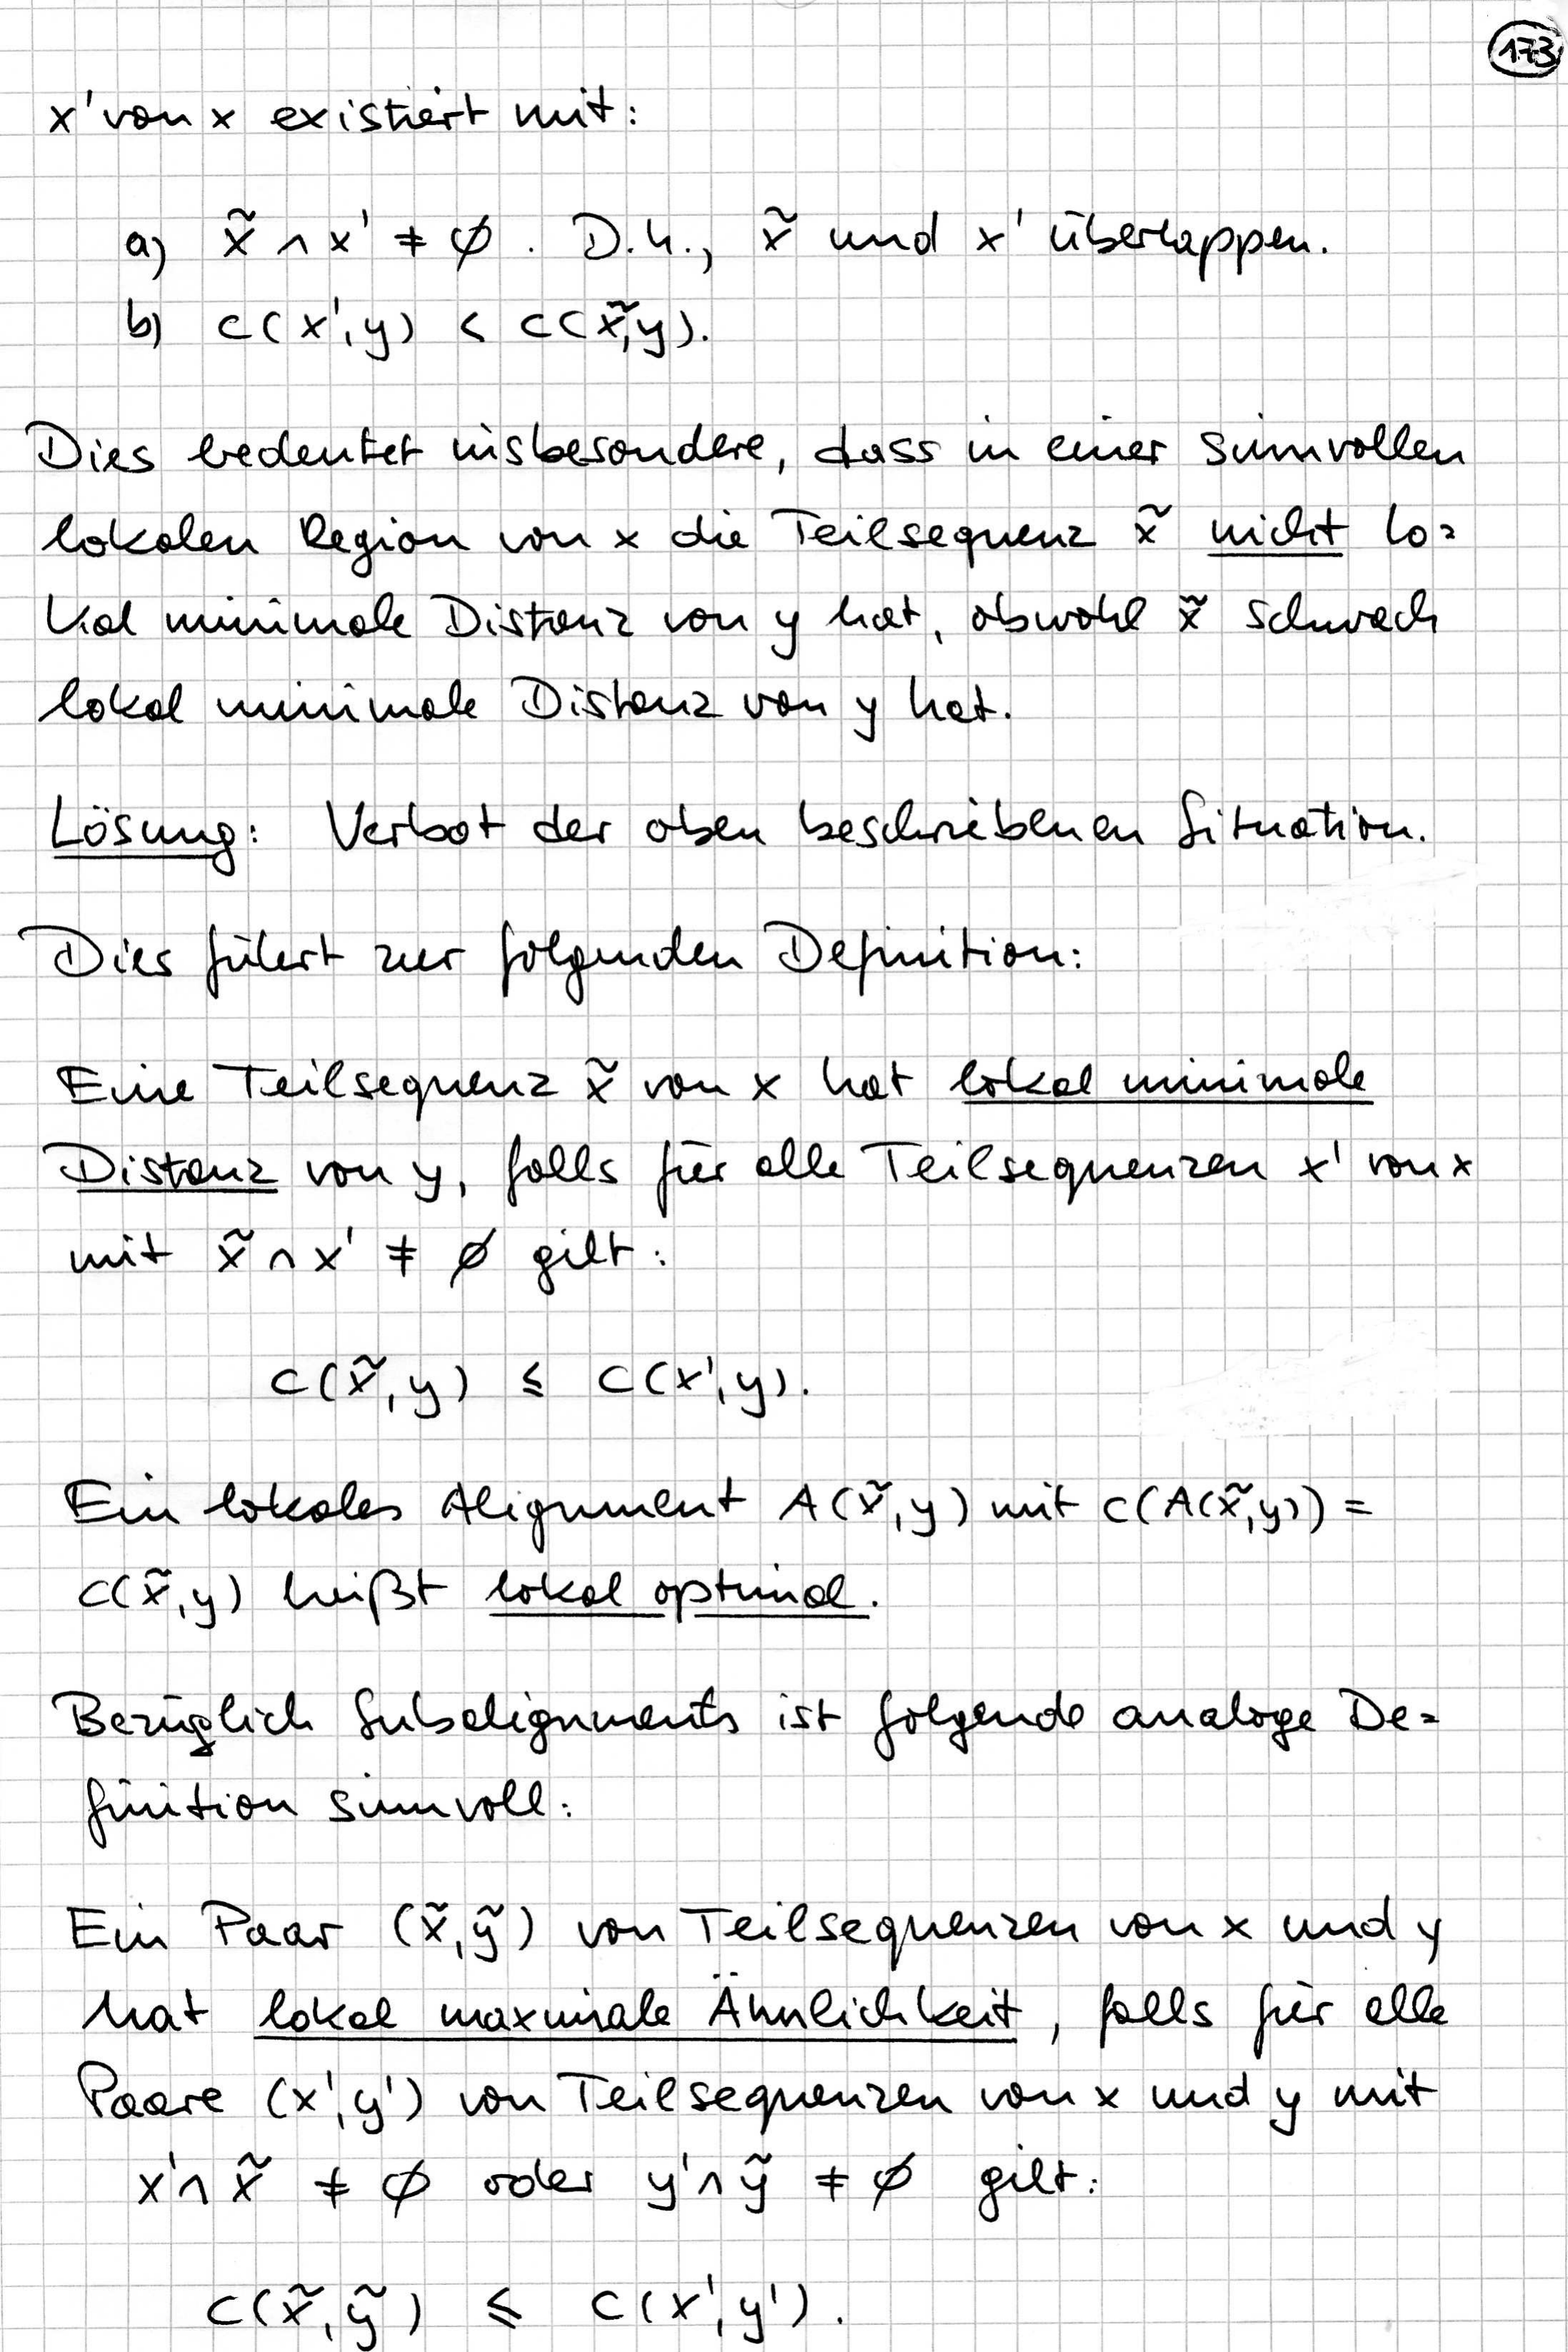 173
x' von x existiert mit:
a) x̃ ∩ x' ≠ ∅. D.h., x̃ und x' überlappen.
b) c(x', y) < c(x̃, y).
Dies bedeutet insbesondere, dass in einer sinnvollen
lokalen Region von x die Teilsequenz x̃ nicht lo=
kal minimale Distanz von y hat, obwohl x̃ schwach
lokal minimale Distanz von y hat.
Lösung: Verbot der oben beschriebenen Situation.
Dies führt zur folgenden Definition:
Eine Teilsequenz x̃ von x hat lokal minimale
Distanz von y, falls für alle Teilsequenzen x' von x
mit x̃ ∩ x' ≠ ∅ gilt:
c(x̃, y) ≤ c(x', y).
Ein lokales Alignment A(x̃, y) mit c(A(x̃, y)) =
c(x̃, y) heißt lokal optimal.
Bezüglich Subalignments ist folgende analoge De=
finition sinnvoll:
Ein Paar (x̃, ỹ) von Teilsequenzen von x und y
hat lokal maximale Ähnlichkeit, falls für alle
Paare (x', y') von Teilsequenzen von x und y mit
x' ∩ x̃ ≠ ∅ oder y' ∩ ỹ ≠ ∅ gilt:
c(x̃, ỹ) ≤ c(x', y').